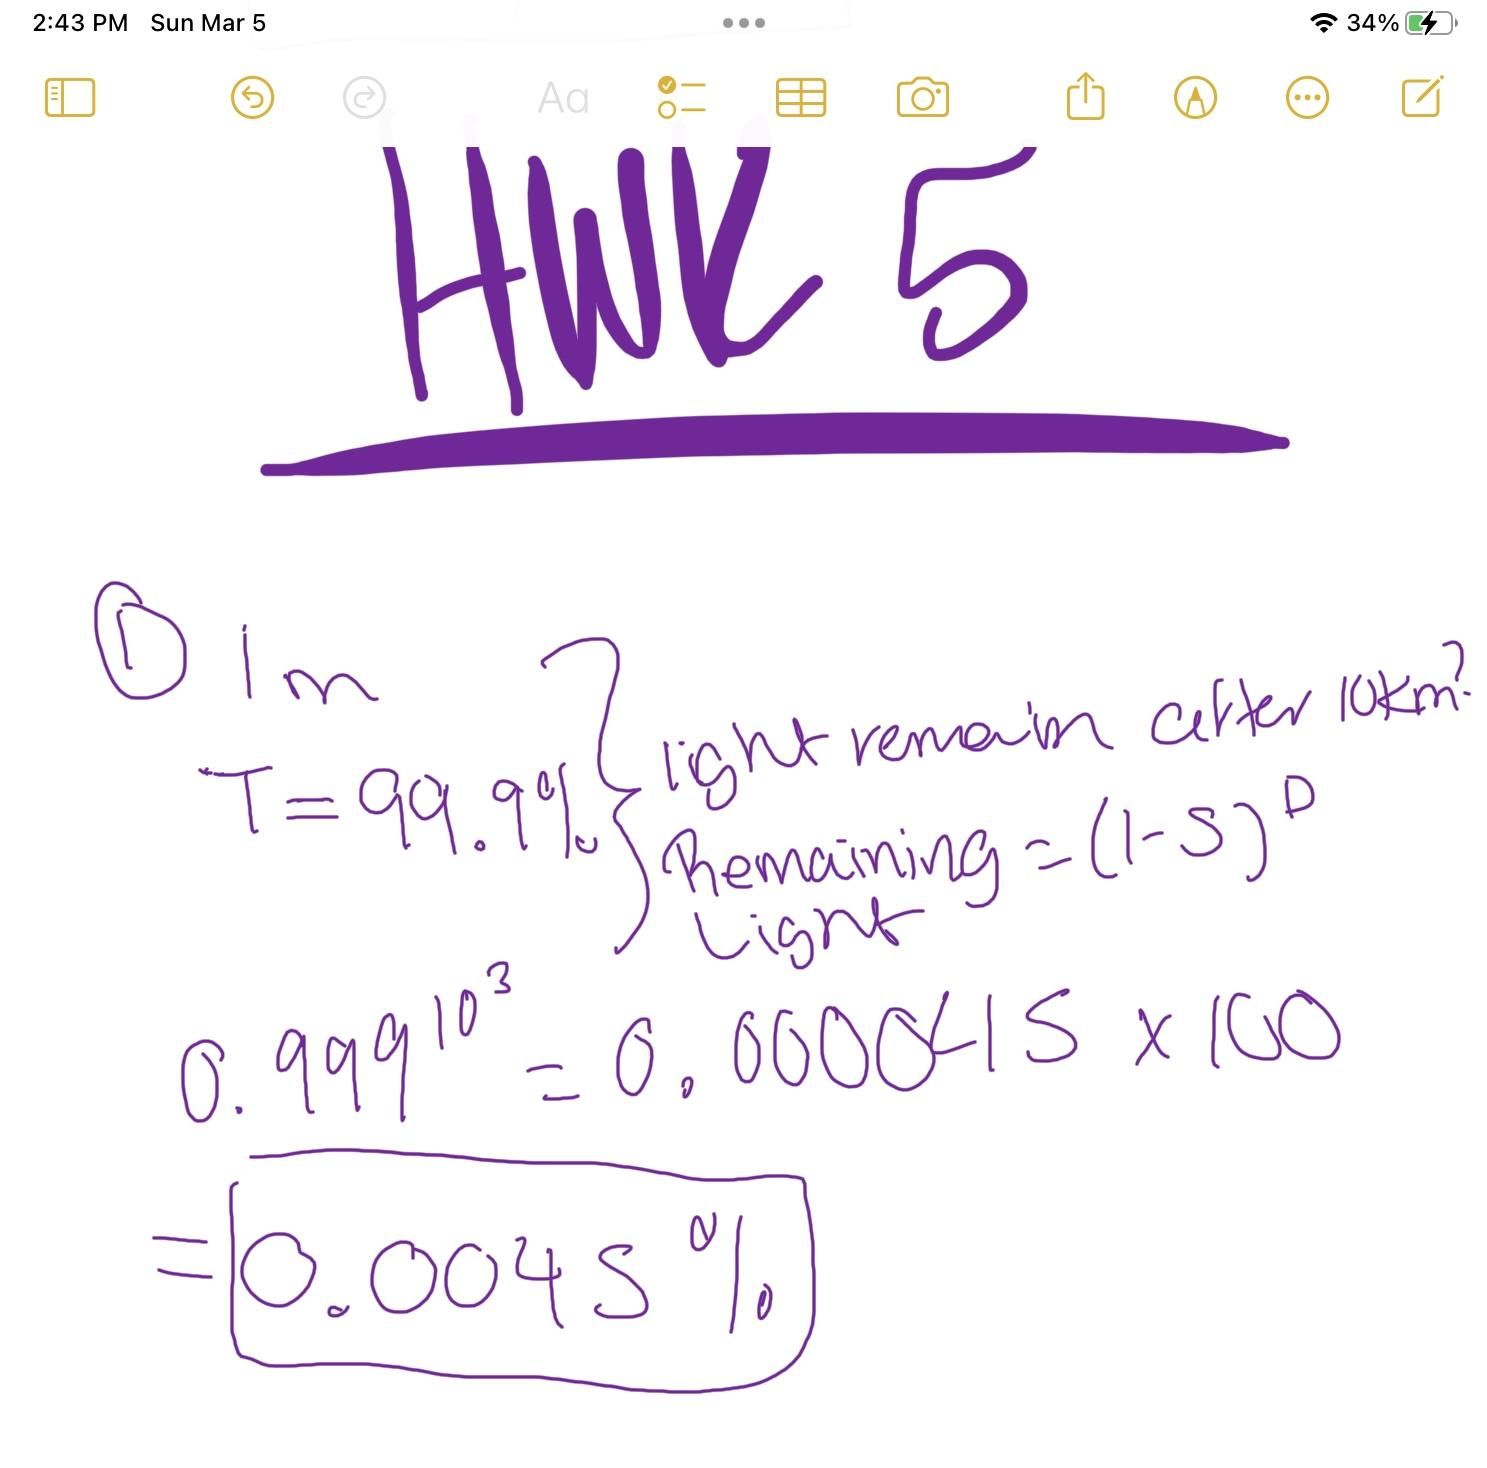 2:43 PM Sun Mar 5
34%
Aa
HWK 5
① 1m
T = 99.9%
light remain after 10km?
Remaining = (1-S)^D
Light
0.999^10^3 = 0.000045 x 100
= 0.0045 %